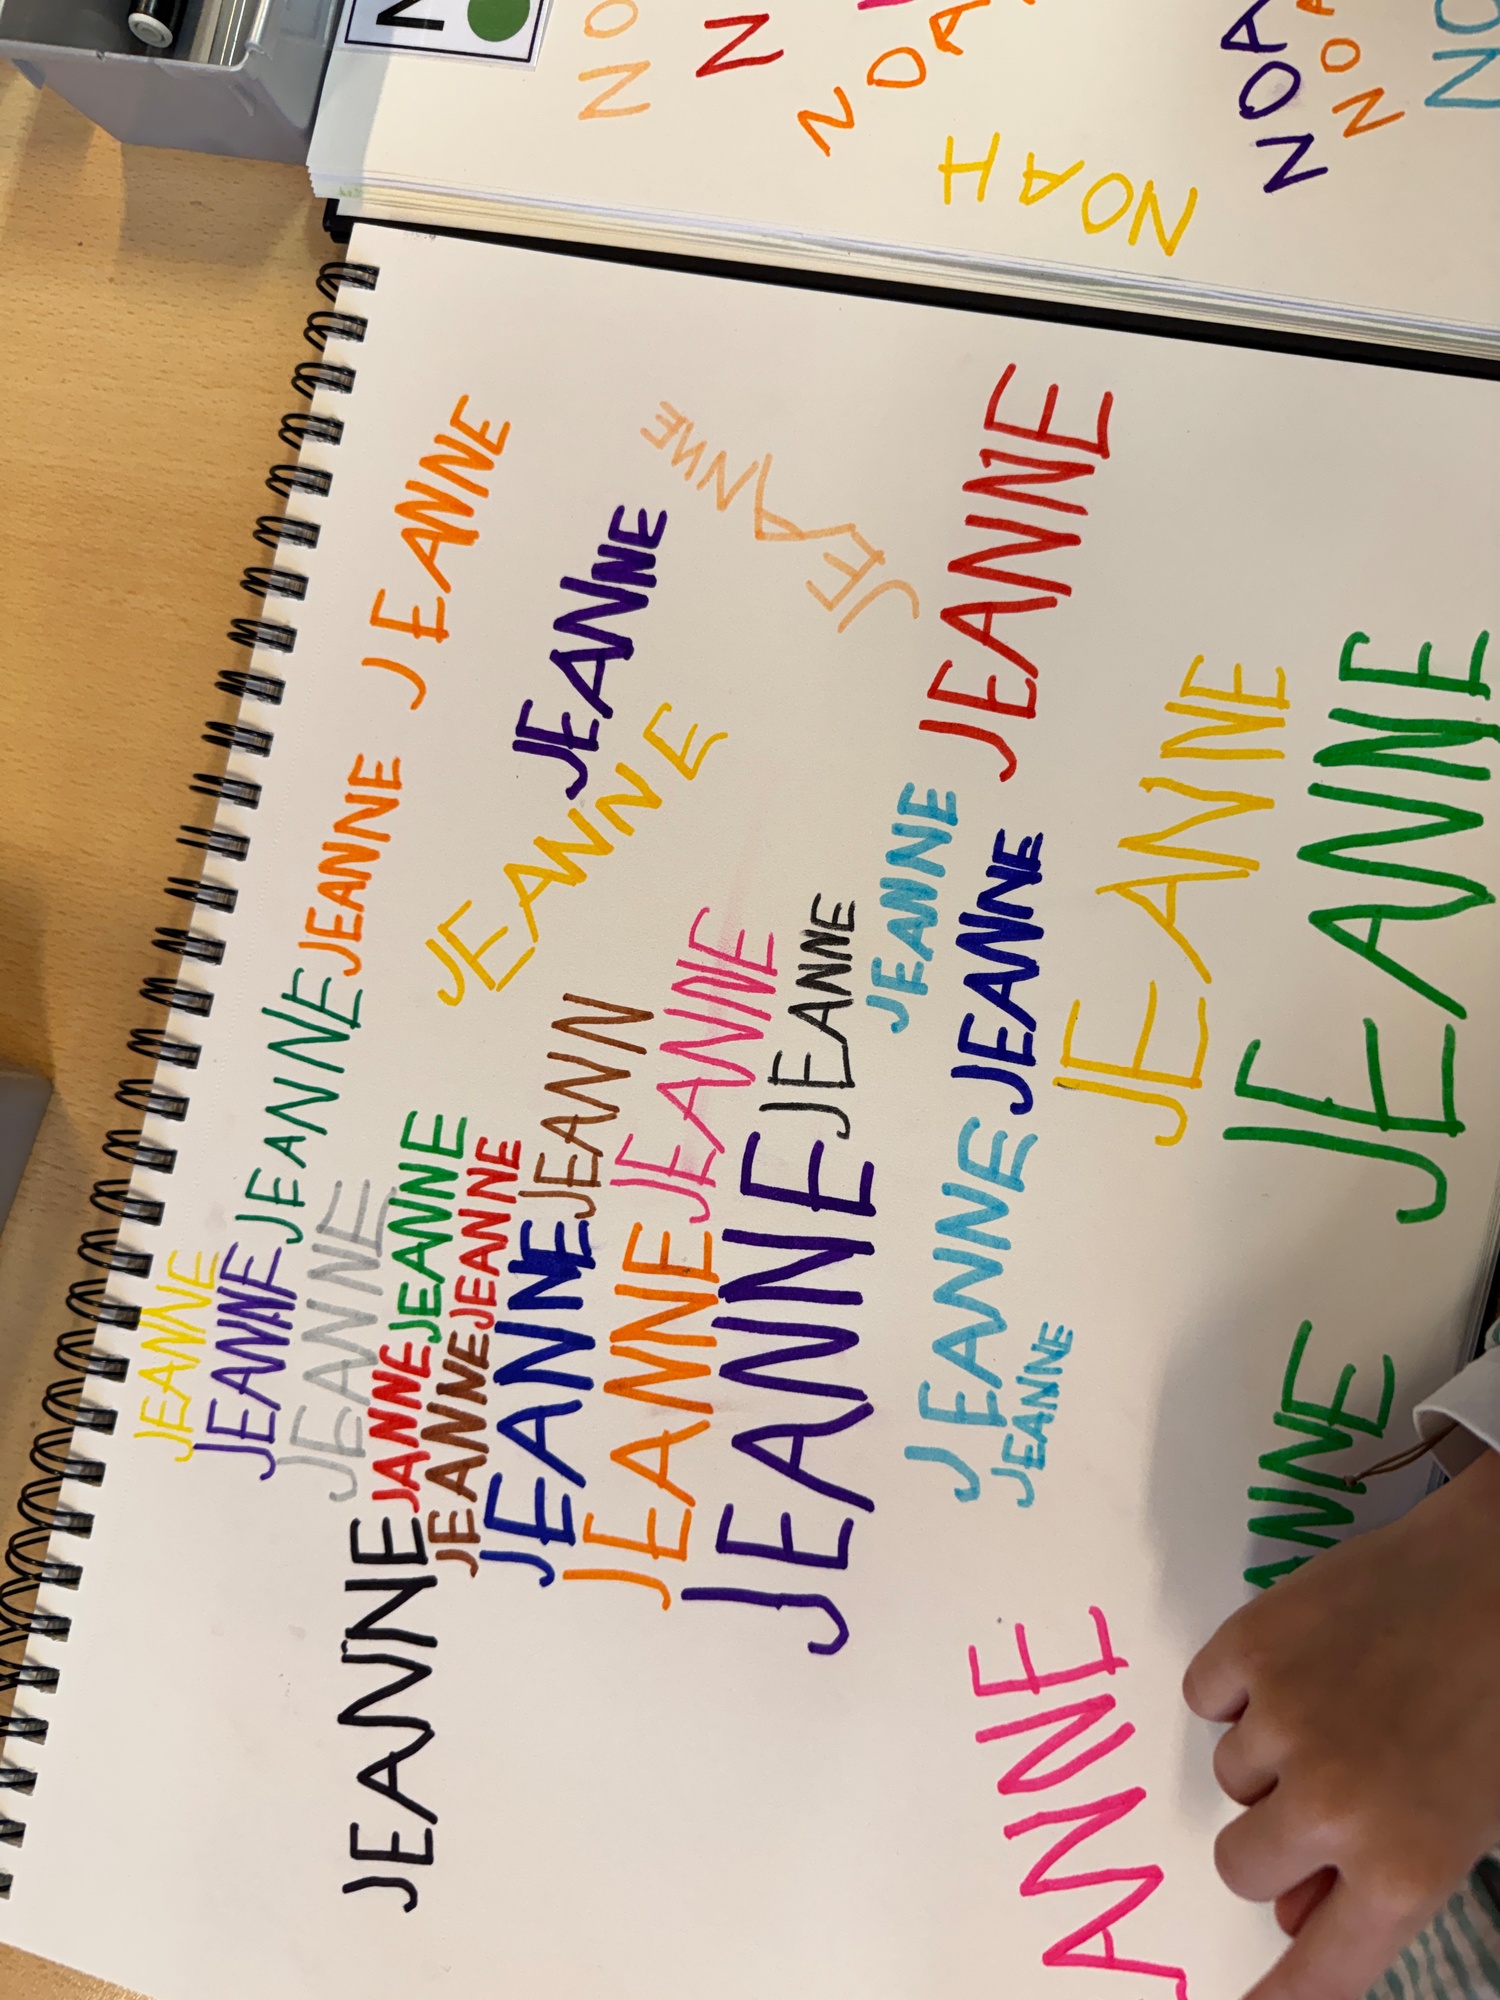 N
NO
N
NOA
NOAH
NOA
NOA
NO
JEANNE
JEANNE
JEANNE
JEANNE
JEANNE
JEANNE
JEANNE
JEANNE
JEANNE
JEANNE
JEANNE
JEANNE
JEANNE
JANNE
JEANNE
JEANNE
JEANNE
JEANNE
JEANN
JEANNE
JEANNE
JEANNE
JEANNE
JEANNE
JEANNE
JEANNE
JEANNE
JEANNE
JEANNE
ANNE
ANNE